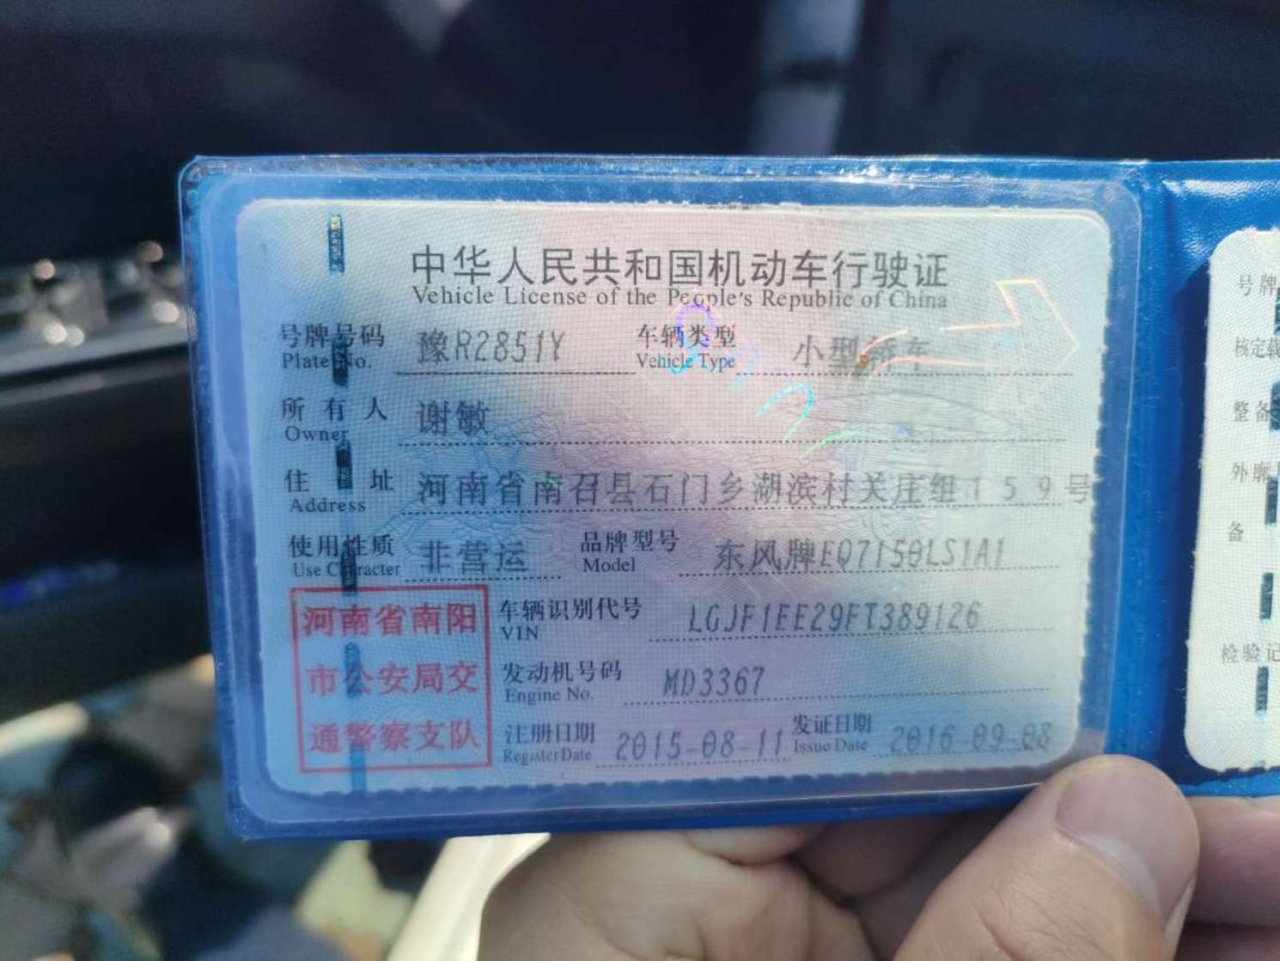 中华人民共和国机动车行驶证
Vehicle License of the People's Republic of China
号牌号码 豫R2851Y 车辆类型 小型轿车
Plate No. Vehicle Type
所有人 谢敏
Owner
住址 河南省南召县石门乡湖滨村关庄组159号
Address
使用性质 非营运 品牌型号 东风牌EQ7150LS1A1
Use Character Model
河南省南阳
市公安局交
通警察支队
车辆识别代号 LGJF1EE29FT389126
VIN
发动机号码 MD3367
Engine No.
注册日期 2015-08-11 发证日期 2016-09-08
Register Date Issue Date
号牌
核定载
整备
外廓
备
检验记